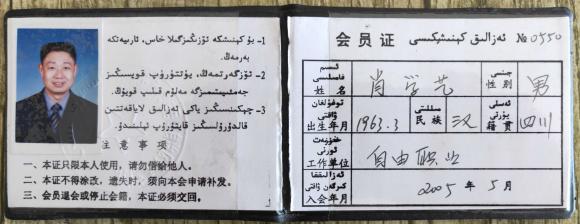 1- بۇ كېنىشكە ئۆزىڭىزگىلا خاس، ئارىيەتكە
بەرمەڭ.
2- ئۆزگەرتمەڭ، يۈتتۈرۈپ قويسىڭىز
جەمئىيىتىمىزگە مەلۇم قىلىپ قويۇڭ.
3- چېكىنسىڭىز ياكى ئەزالىق لاياقەتتىن
قالدۇرۇلسىڭىز قايتۇرۇپ تاپشۇرۇڭ.
注意事项
一、本证只限本人使用，请勿借给他人。
二、本证不得涂改，遗失时，须向本会申请补发。
三、会员退会或停止会籍，本证必须交回。
会员证 ئەزالىق كېنىشكىسى №0550
ئىسىم
فامىلىسى
姓名 肖学艺 جىنسى
性别 男
تۇغۇلغان
ۋاقتى
出生年月 1963.3 مىللىتى
民族 汉 ئەسلى
يۇرتى
籍贯 四川
خىزمەت
ئورنى
工作单位 自由职业
ئەزالىققا
كىرگەن ۋاقتى
入会年月 2005年5月